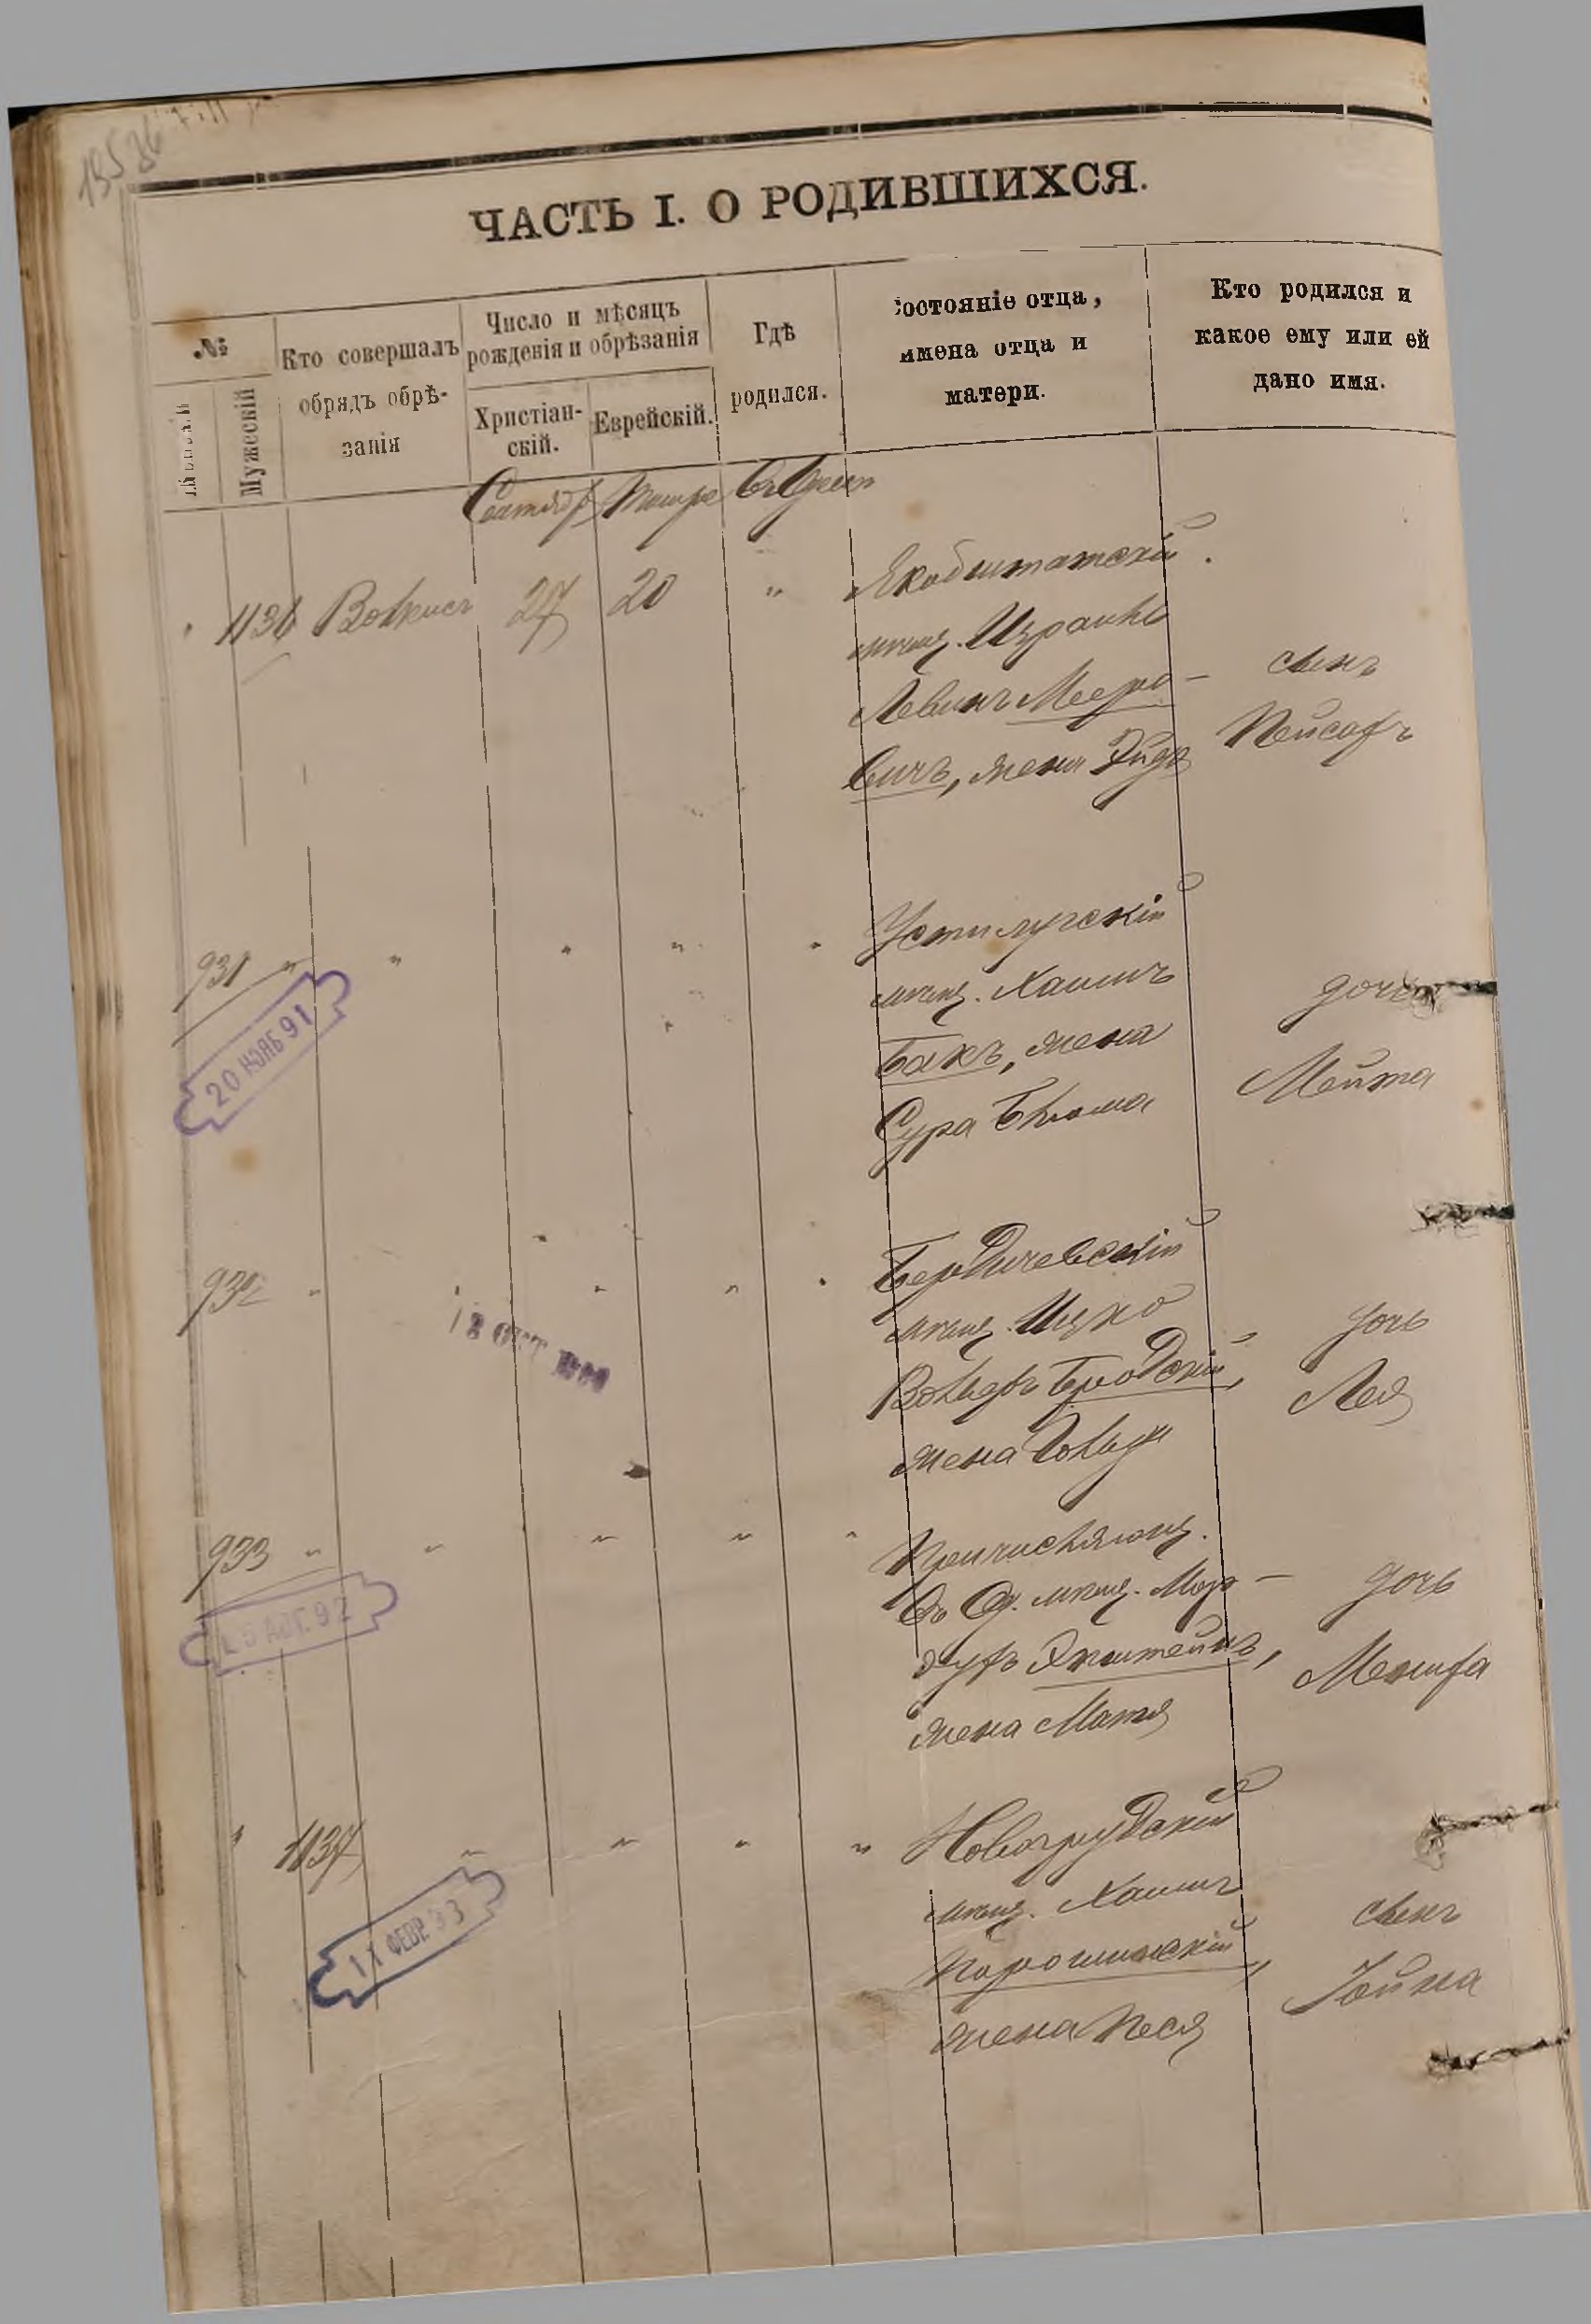 ЧАСТЬ I. О РОДИВШИХСЯ.
№
Женскій
Мужескій
Кто совершалъ
обрядъ обрѣ-
занія
Число и мѣсяцъ
рожденія и обрѣзанія
Христіан-
скій.
Еврейскій.
Гдѣ
родился.
Состояніе отца,
имена отца и
матери.
Кто родился и
какое ему или ей
дано имя.
Сентябр Тишре Въ Одессѣ
1136 27 20 " Якобштатскій
мѣщ. Израиль
Левинъ Мееро-
вичъ, жена
сынъ
Пейсахъ
931 " " " " " Устилугскій
мѣщ. Хаимъ
Бакъ, жена
Сура Блюма
дочь
Мейта
20 НОЯБ 91
932 " " " " " Бердичевскій
мѣщ. Ицко
Вольфъ Бродскій,
жена Гольда
дочь
Лея
12 ОКТ
933 " " " " " Причисляющ.
въ Од. мѣщ. Мор-
духъ Экштейнъ,
жена Матя
дочь
Мениха
АВГ. 92
" 1137 " " " " Новогрудскій
мѣщ. Хаимъ
жена Песя
сынъ
Іойна
11 ФЕВР. 93